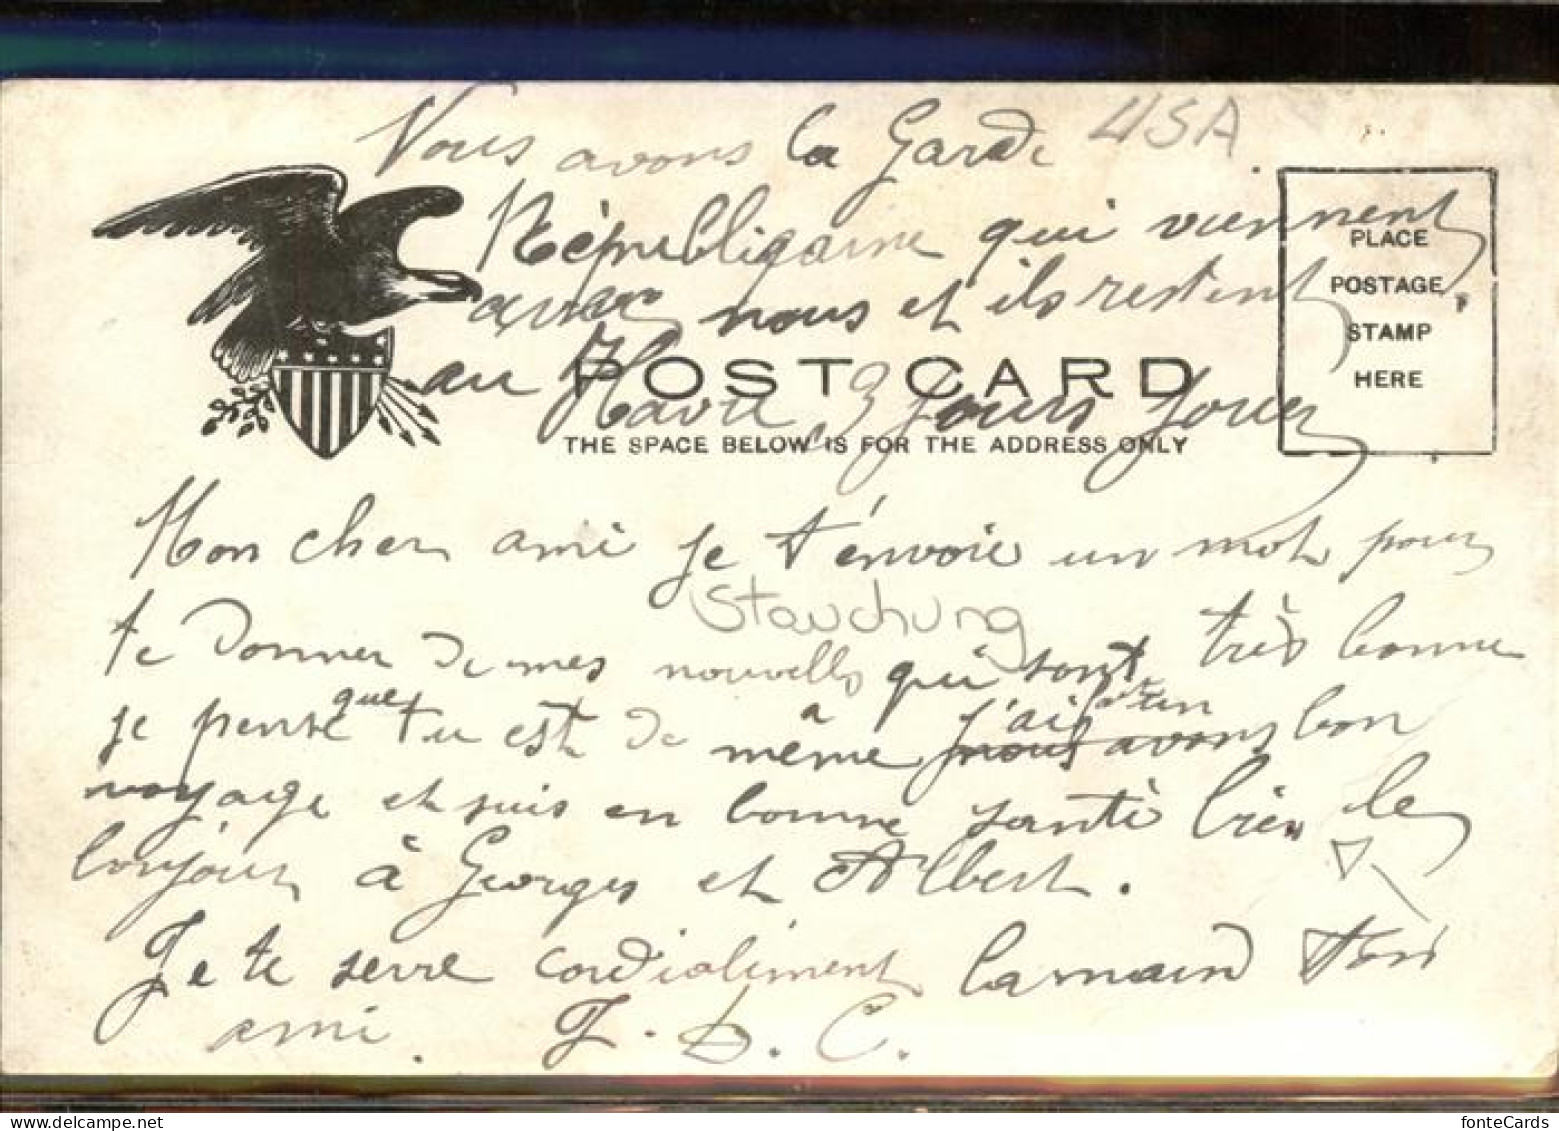 Vous avons la Garde USA
Républigaine qui viennent
avec nous et ils restent
au Havre 3 jours jouer
POST CARD
THE SPACE BELOW IS FOR THE ADDRESS ONLY
PLACE
POSTAGE
STAMP
HERE
Mon cher ami je t'énvoie un mot pour
Stauchung
te donner de mes nouvells qui sont très bonne
je pense que tu est de même j'ai nous avons bon
voyage et suis en bonne santé bien le
bonjour à Georges et Albert.
Je te serre cordialiment la main Ton
ami. J. D. C.
www.delcampe.net
fonteCards